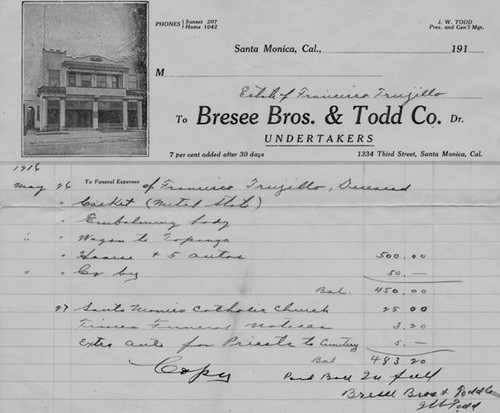 PHONES Sunset 207
Home 1042
J. W. TODD
Pres. and Gen'l Mgr.
Santa Monica, Cal., 191
M
Estate of Francisco Trujillo
To Bresee Bros. & Todd Co. Dr.
UNDERTAKERS
7 per cent added after 30 days
1334 Third Street, Santa Monica, Cal.
1916
May 26 To Funeral Expenses of Francisco Trujillo, Deceased
" Casket (Metal State)
" Embalming body
" " Wagon to Topanga
" " Hearse & 5 autos 500.00
" " Cr by 50.—
Bal. 450.00
27 Santa Monica Catholic Church 25 00
Times Funeral Notices 3.20
Extra auto for Priests to Cemetery 5.—
Bal 483.20
Copy Paid Ball In full
Bresee Bros & Todd Co
JW Todd